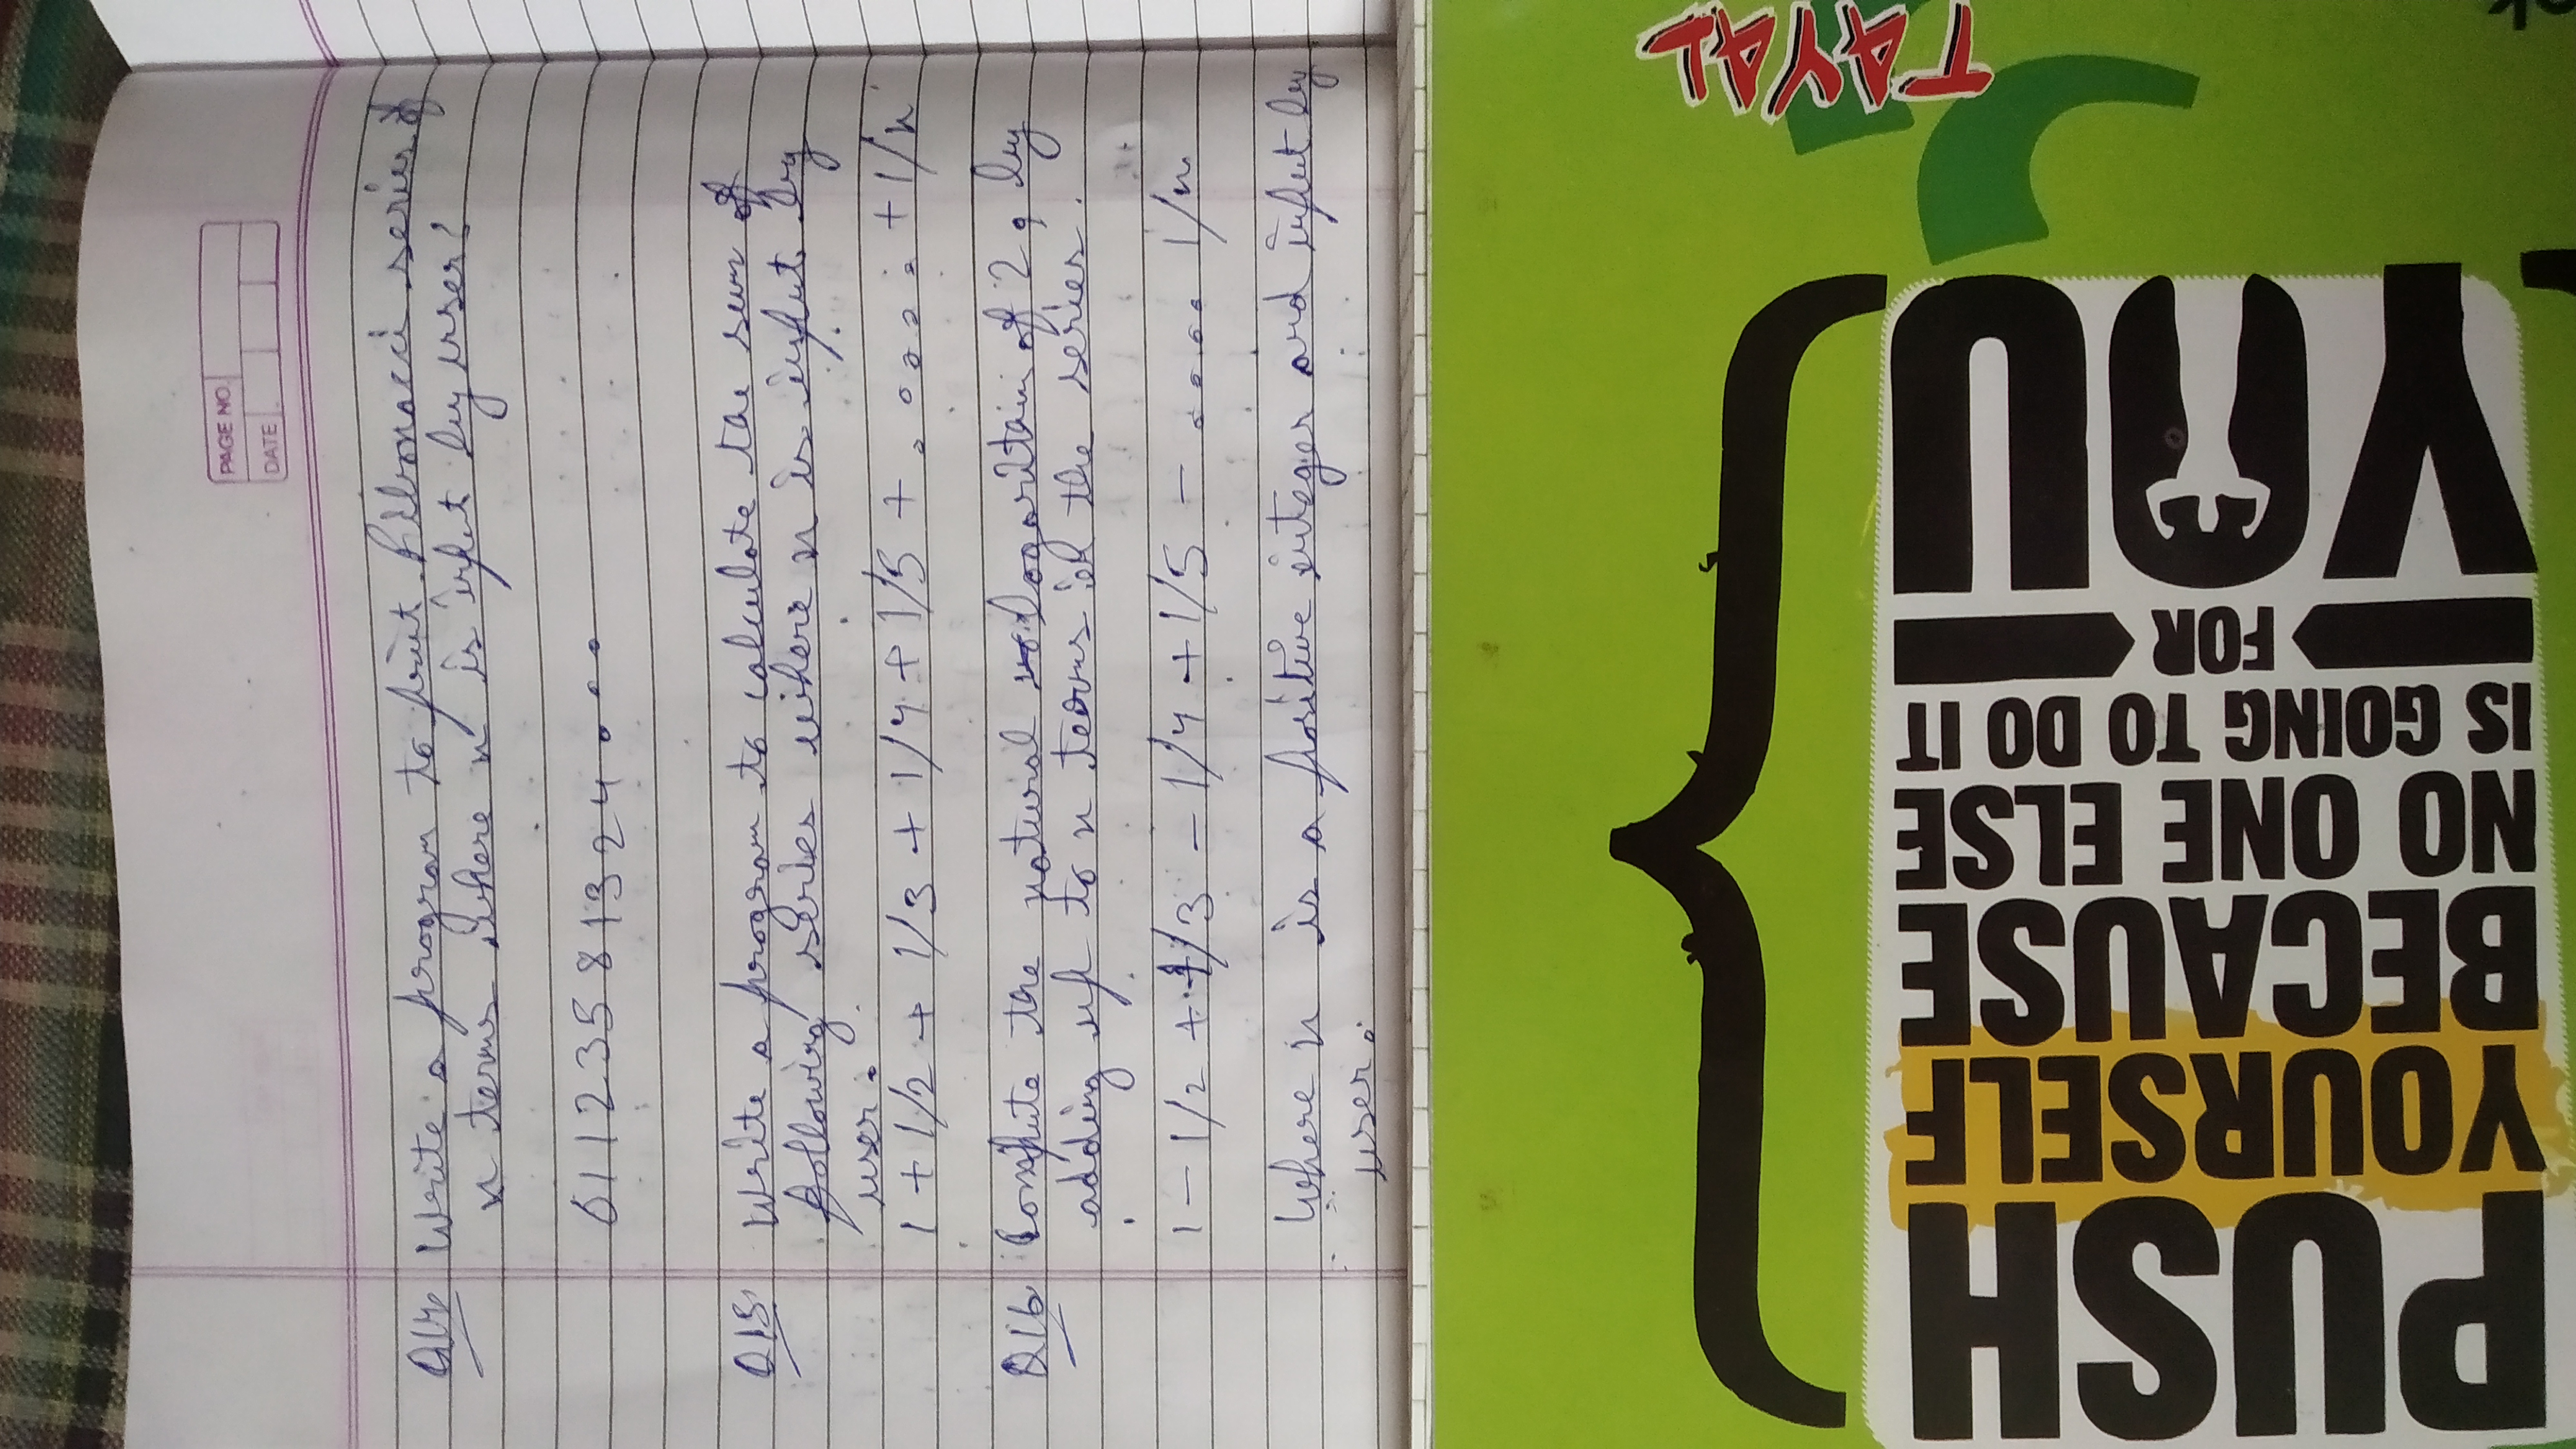 PAGE NO.
DATE
Q14 Write a program to print Fibonacci series of
n terms where n is input by user?
0 1 1 2 3 5 8 13 24 . . .
Q15 Write a program to calculate the sum of
following series where n is input by
user.
1 + 1/2 + 1/3 + 1/4 + 1/5 + . . . . . . +1/n
Q16 Compute the natural logoritain of 2, by
adding up to n terms in the series.
1 - 1/2 + 1/3 - 1/4 + 1/5 - . . . . 1/n
Where n is a positive integer and input by
user.
PUSH
YOURSELF
BECAUSE
NO ONE ELSE
IS GOING TO DO IT
FOR
YOU
TAYAL